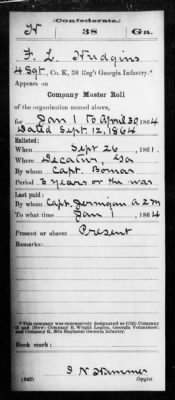 Confederate.
H 38 Ga.
F. L. Hudgins
4 Sgt., Co. K, 38 Reg't Georgia Infantry.*
Appears on
Company Muster Roll
of the organization named above,
for Jan 1 to April 30, 1864.
Dated Sept. 12, 1864
Enlisted:
When Sept 26, 1861.
Where Decatur, Ga
By whom Capt. Bomar
Period 3 years or the war
Last paid:
By whom Capt. Jernigan A Q M
To what time Jan 1, 1864
Present or absent Present
Remarks:
*This company was successively designated as (Old) Company
G and (New) Company B, Wright Legion, Georgia Volunteers;
and Company K, 38th Regiment Georgia Infantry.
Book mark:
(642)
Copyist.